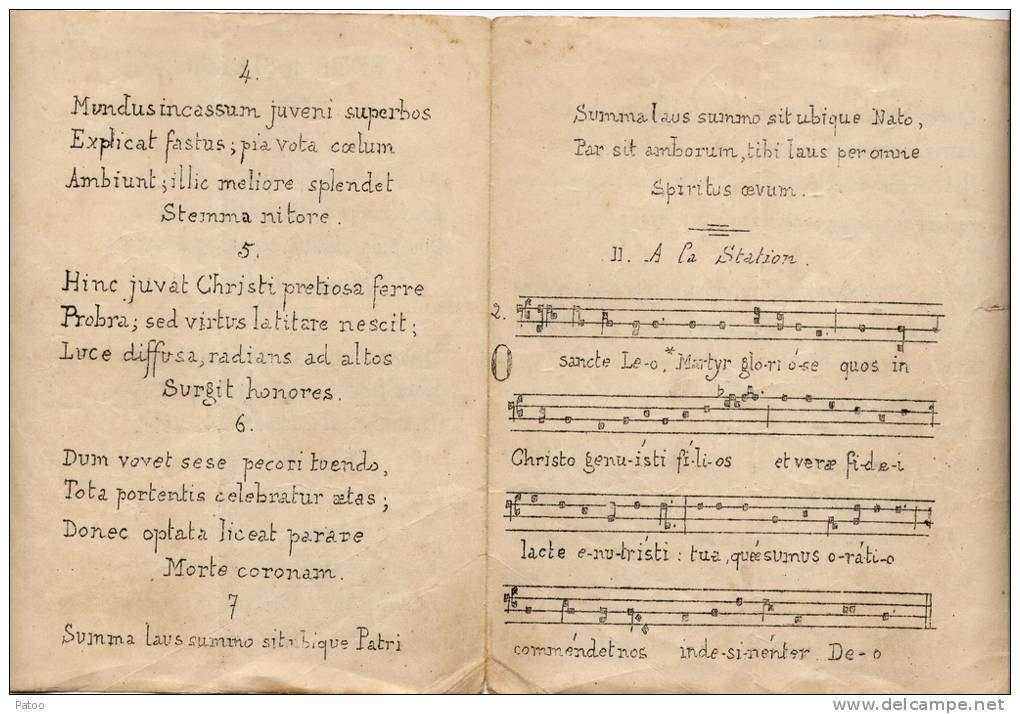 4.
Mundus incassum juveni superbos
Explicat fastus; pia vota cœlum
Ambiunt; illic meliore splendet
Stemma nitore.
5.
Hinc juvat Christi pretiosa ferre
Probra; sed virtus latitare nescit;
Luce diffusa, radians ad altos
Surgit honores.
6.
Dum vovet sese pecori tuendo,
Tota portentis celebratur ætas;
Donec optata liceat parare
Morte coronam.
7
Summa laus summo sit ubique Patri
Summa laus summo sit ubique Nato,
Par sit amborum, tibi laus per omne
Spiritus œvum.
II. A la Station.
2.
O sancte Le-o,* Martyr glo-ri-ó-se quos in
Christo genu-ísti fí-li-os et veræ fí-dæ-i
lacte e-nu-trísti: tua, quǽsumus o-ráti-o
comméndet nos inde-si-nénter De-o
Patoo
www.delcampe.net